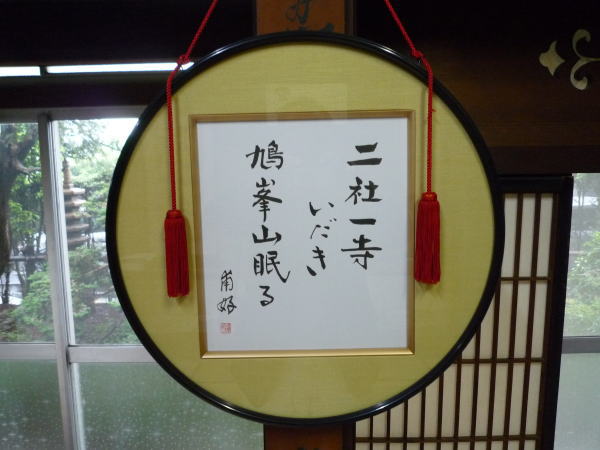 二社一寺
いだき
鳩峯山眠る